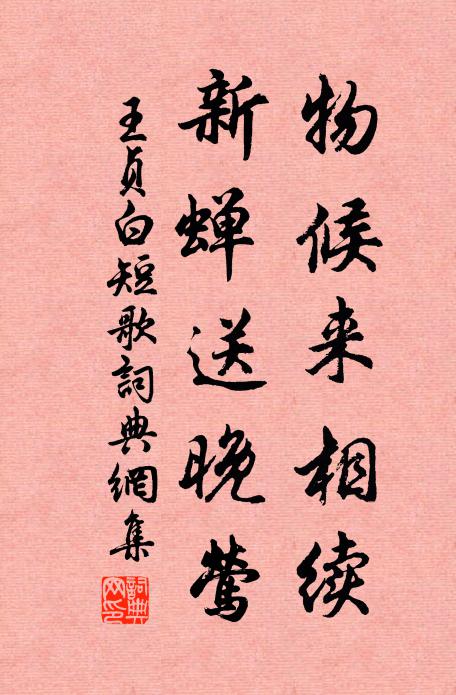 物候来相续
新蝉送晚莺
王贞白短歌詞典網集
詞典網印